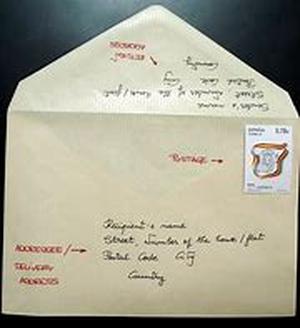 RETURN
ADDRESS
Sender's name
Street, Number of the house/flat
Postal Code City
Country
POSTAGE
ESPAÑA
0,78€
Recipient's name
Street, Number of the house/flat
Postal Code City
Country
ADDRESSEE/
DELIVERY
ADDRESS